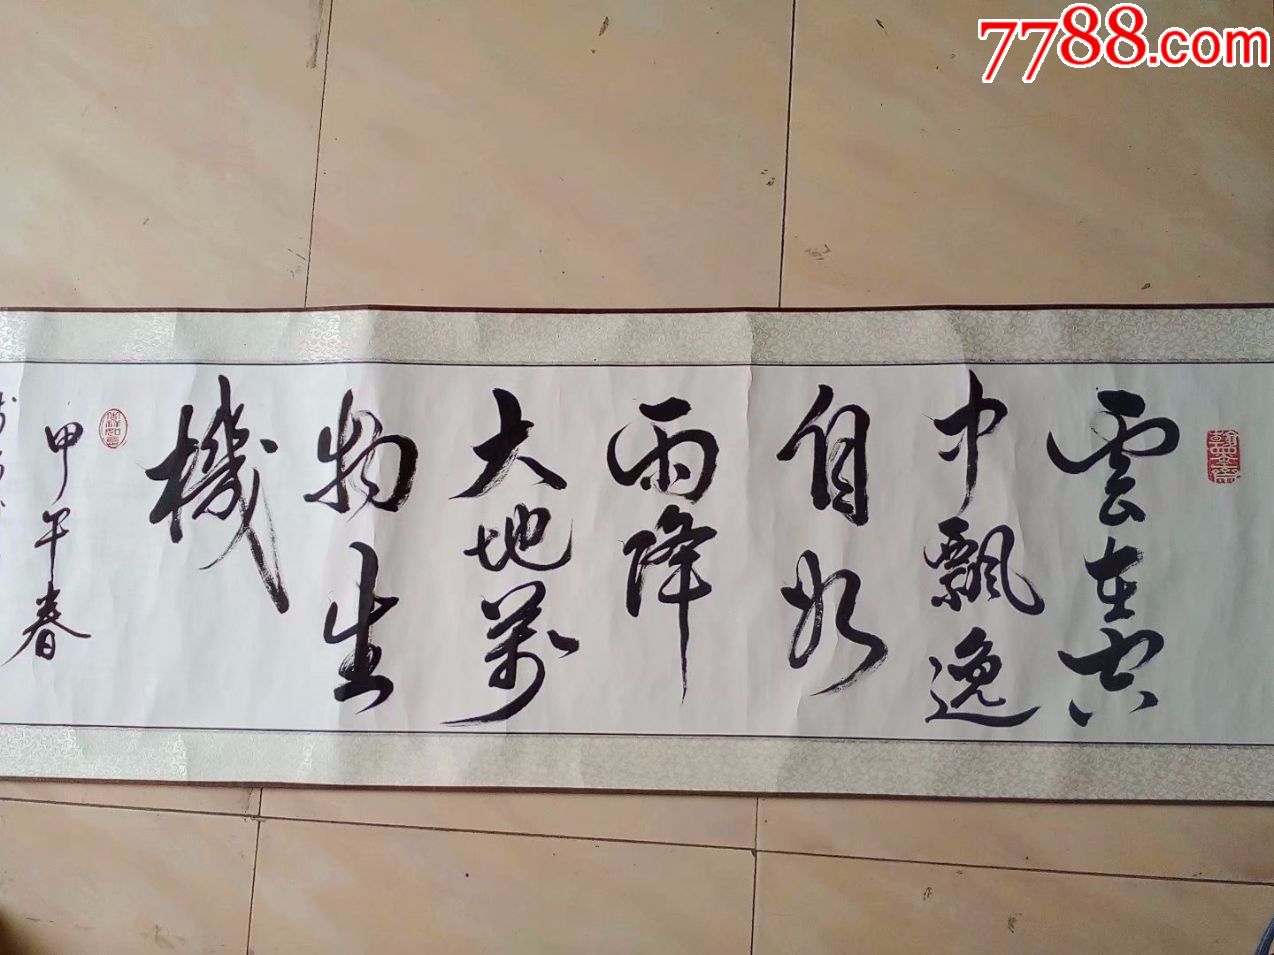 7788.com
雲在空
中飄逸
自如
雨降
大地萬
物生
機
甲午春